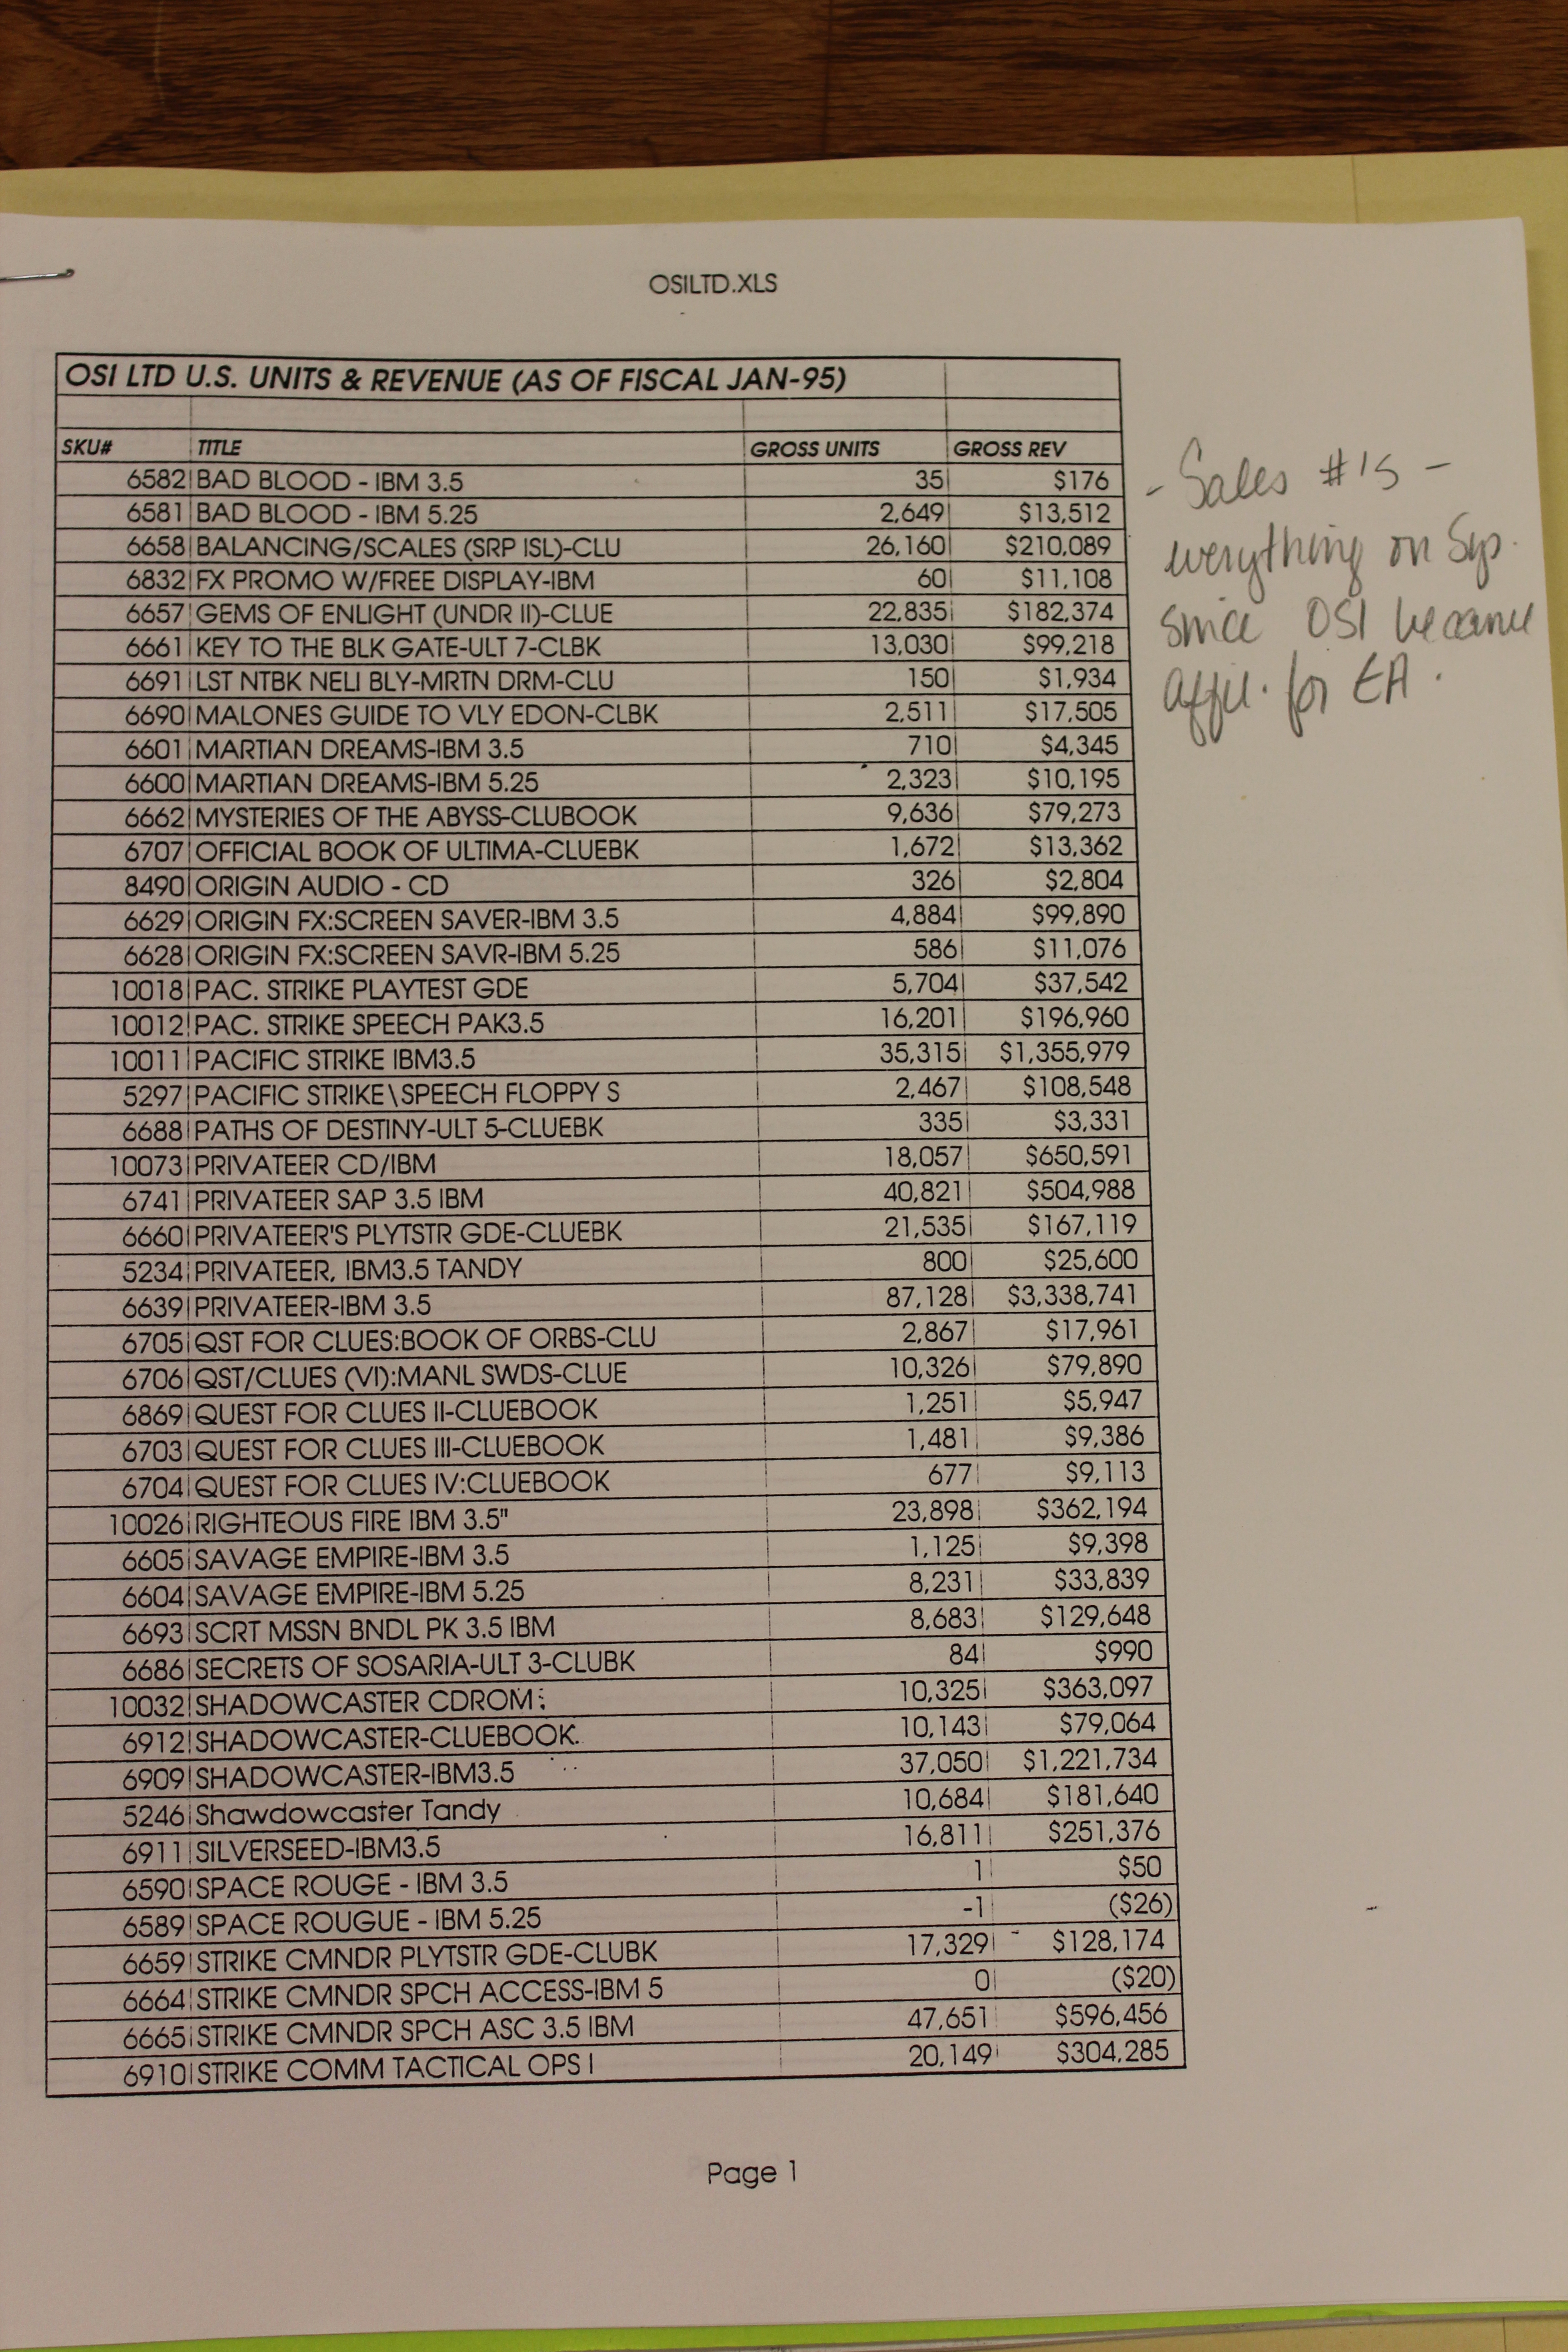 OSILTD.XLS
OSI LTD U.S. UNITS & REVENUE (AS OF FISCAL JAN-95)
SKU# TITLE GROSS UNITS GROSS REV
6582 BAD BLOOD - IBM 3.5 35 $176
6581 BAD BLOOD - IBM 5.25 2,649 $13,512
6658 BALANCING/SCALES (SRP ISL)-CLU 26,160 $210,089
6832 FX PROMO W/FREE DISPLAY-IBM 60 $11,108
6657 GEMS OF ENLIGHT (UNDR II)-CLUE 22,835 $182,374
6661 KEY TO THE BLK GATE-ULT 7-CLBK 13,030 $99,218
6691 LST NTBK NELI BLY-MRTN DRM-CLU 150 $1,934
6690 MALONES GUIDE TO VLY EDON-CLBK 2,511 $17,505
6601 MARTIAN DREAMS-IBM 3.5 710 $4,345
6600 MARTIAN DREAMS-IBM 5.25 2,323 $10,195
6662 MYSTERIES OF THE ABYSS-CLUBOOK 9,636 $79,273
6707 OFFICIAL BOOK OF ULTIMA-CLUEBK 1,672 $13,362
8490 ORIGIN AUDIO - CD 326 $2,804
6629 ORIGIN FX:SCREEN SAVER-IBM 3.5 4,884 $99,890
6628 ORIGIN FX:SCREEN SAVR-IBM 5.25 586 $11,076
10018 PAC. STRIKE PLAYTEST GDE 5,704 $37,542
10012 PAC. STRIKE SPEECH PAK3.5 16,201 $196,960
10011 PACIFIC STRIKE IBM3.5 35,315 $1,355,979
5297 PACIFIC STRIKE\SPEECH FLOPPY S 2,467 $108,548
6688 PATHS OF DESTINY-ULT 5-CLUEBK 335 $3,331
10073 PRIVATEER CD/IBM 18,057 $650,591
6741 PRIVATEER SAP 3.5 IBM 40,821 $504,988
6660 PRIVATEER'S PLYTSTR GDE-CLUEBK 21,535 $167,119
5234 PRIVATEER, IBM3.5 TANDY 800 $25,600
6639 PRIVATEER-IBM 3.5 87,128 $3,338,741
6705 QST FOR CLUES:BOOK OF ORBS-CLU 2,867 $17,961
6706 QST/CLUES (VI):MANL SWDS-CLUE 10,326 $79,890
6869 QUEST FOR CLUES II-CLUEBOOK 1,251 $5,947
6703 QUEST FOR CLUES III-CLUEBOOK 1,481 $9,386
6704 QUEST FOR CLUES IV:CLUEBOOK 677 $9,113
10026 RIGHTEOUS FIRE IBM 3.5" 23,898 $362,194
6605 SAVAGE EMPIRE-IBM 3.5 1,125 $9,398
6604 SAVAGE EMPIRE-IBM 5.25 8,231 $33,839
6693 SCRT MSSN BNDL PK 3.5 IBM 8,683 $129,648
6686 SECRETS OF SOSARIA-ULT 3-CLUBK 84 $990
10032 SHADOWCASTER CDROM 10,325 $363,097
6912 SHADOWCASTER-CLUEBOOK 10,143 $79,064
6909 SHADOWCASTER-IBM3.5 37,050 $1,221,734
5246 Shawdowcaster Tandy 10,684 $181,640
6911 SILVERSEED-IBM3.5 16,811 $251,376
6590 SPACE ROUGE - IBM 3.5 1 $50
6589 SPACE ROUGUE - IBM 5.25 -1 ($26)
6659 STRIKE CMNDR PLYTSTR GDE-CLUBK 17,329 $128,174
6664 STRIKE CMNDR SPCH ACCESS-IBM 5 0 ($20)
6665 STRIKE CMNDR SPCH ASC 3.5 IBM 47,651 $596,456
6910 STRIKE COMM TACTICAL OPS I 20,149 $304,285
- Sales #'s -
everything on Sys.
since OSI became
affil. for EA.
Page 1